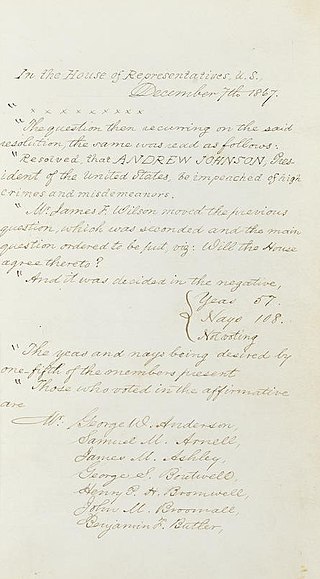 In the House of Representatives, U.S.
December 7th 1867.
" x x x x x x x x x
"The question then recurring on the said
resolution, the same was read as follows:
"Resolved that ANDREW JOHNSON, Pres-
ident of the United States, be impeached of high
crimes and misdemeanors.
"Mr. James F. Wilson moved the previous
question, which was seconded and the main
question ordered to be put, viz: Will the House
agree thereto?
"And it was decided in the negative,
Yeas 57.
Nays 108.
Not voting
"The yeas and nays being desired by
one fifth of the members present
"Those who voted in the affirmative
are
Mr. George W. Anderson,
Samuel M. Arnell,
James M. Ashley,
George S. Boutwell,
Henry P. H. Bromwell,
John M. Broomall,
Benjamin F. Butler,